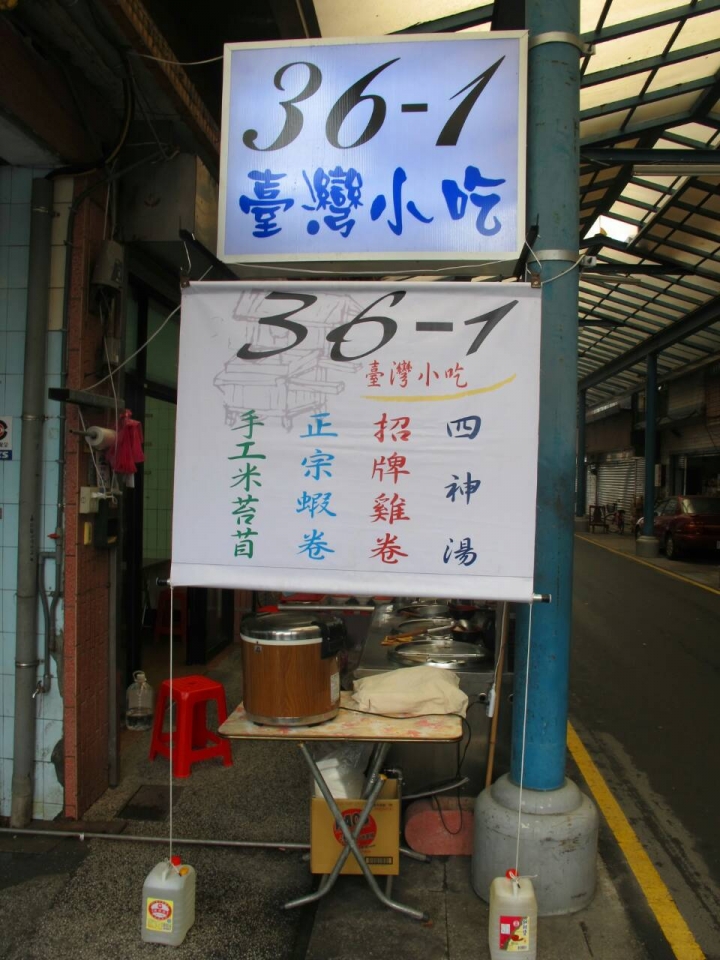 36-1
臺灣小吃
36-1
臺灣小吃
四神湯
招牌雞卷
正宗蝦卷
手工米苔苜